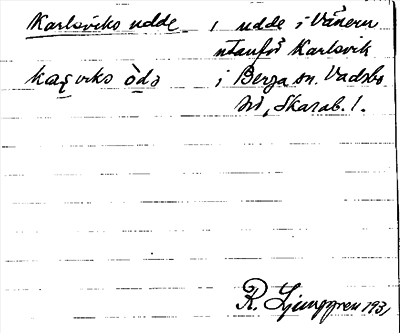 Karlsviks udde
udde i Vänern
utanför Karlsvik
i Berga sn. Vadsbo
hd, Skarab. l.
R. Ljunggren 193